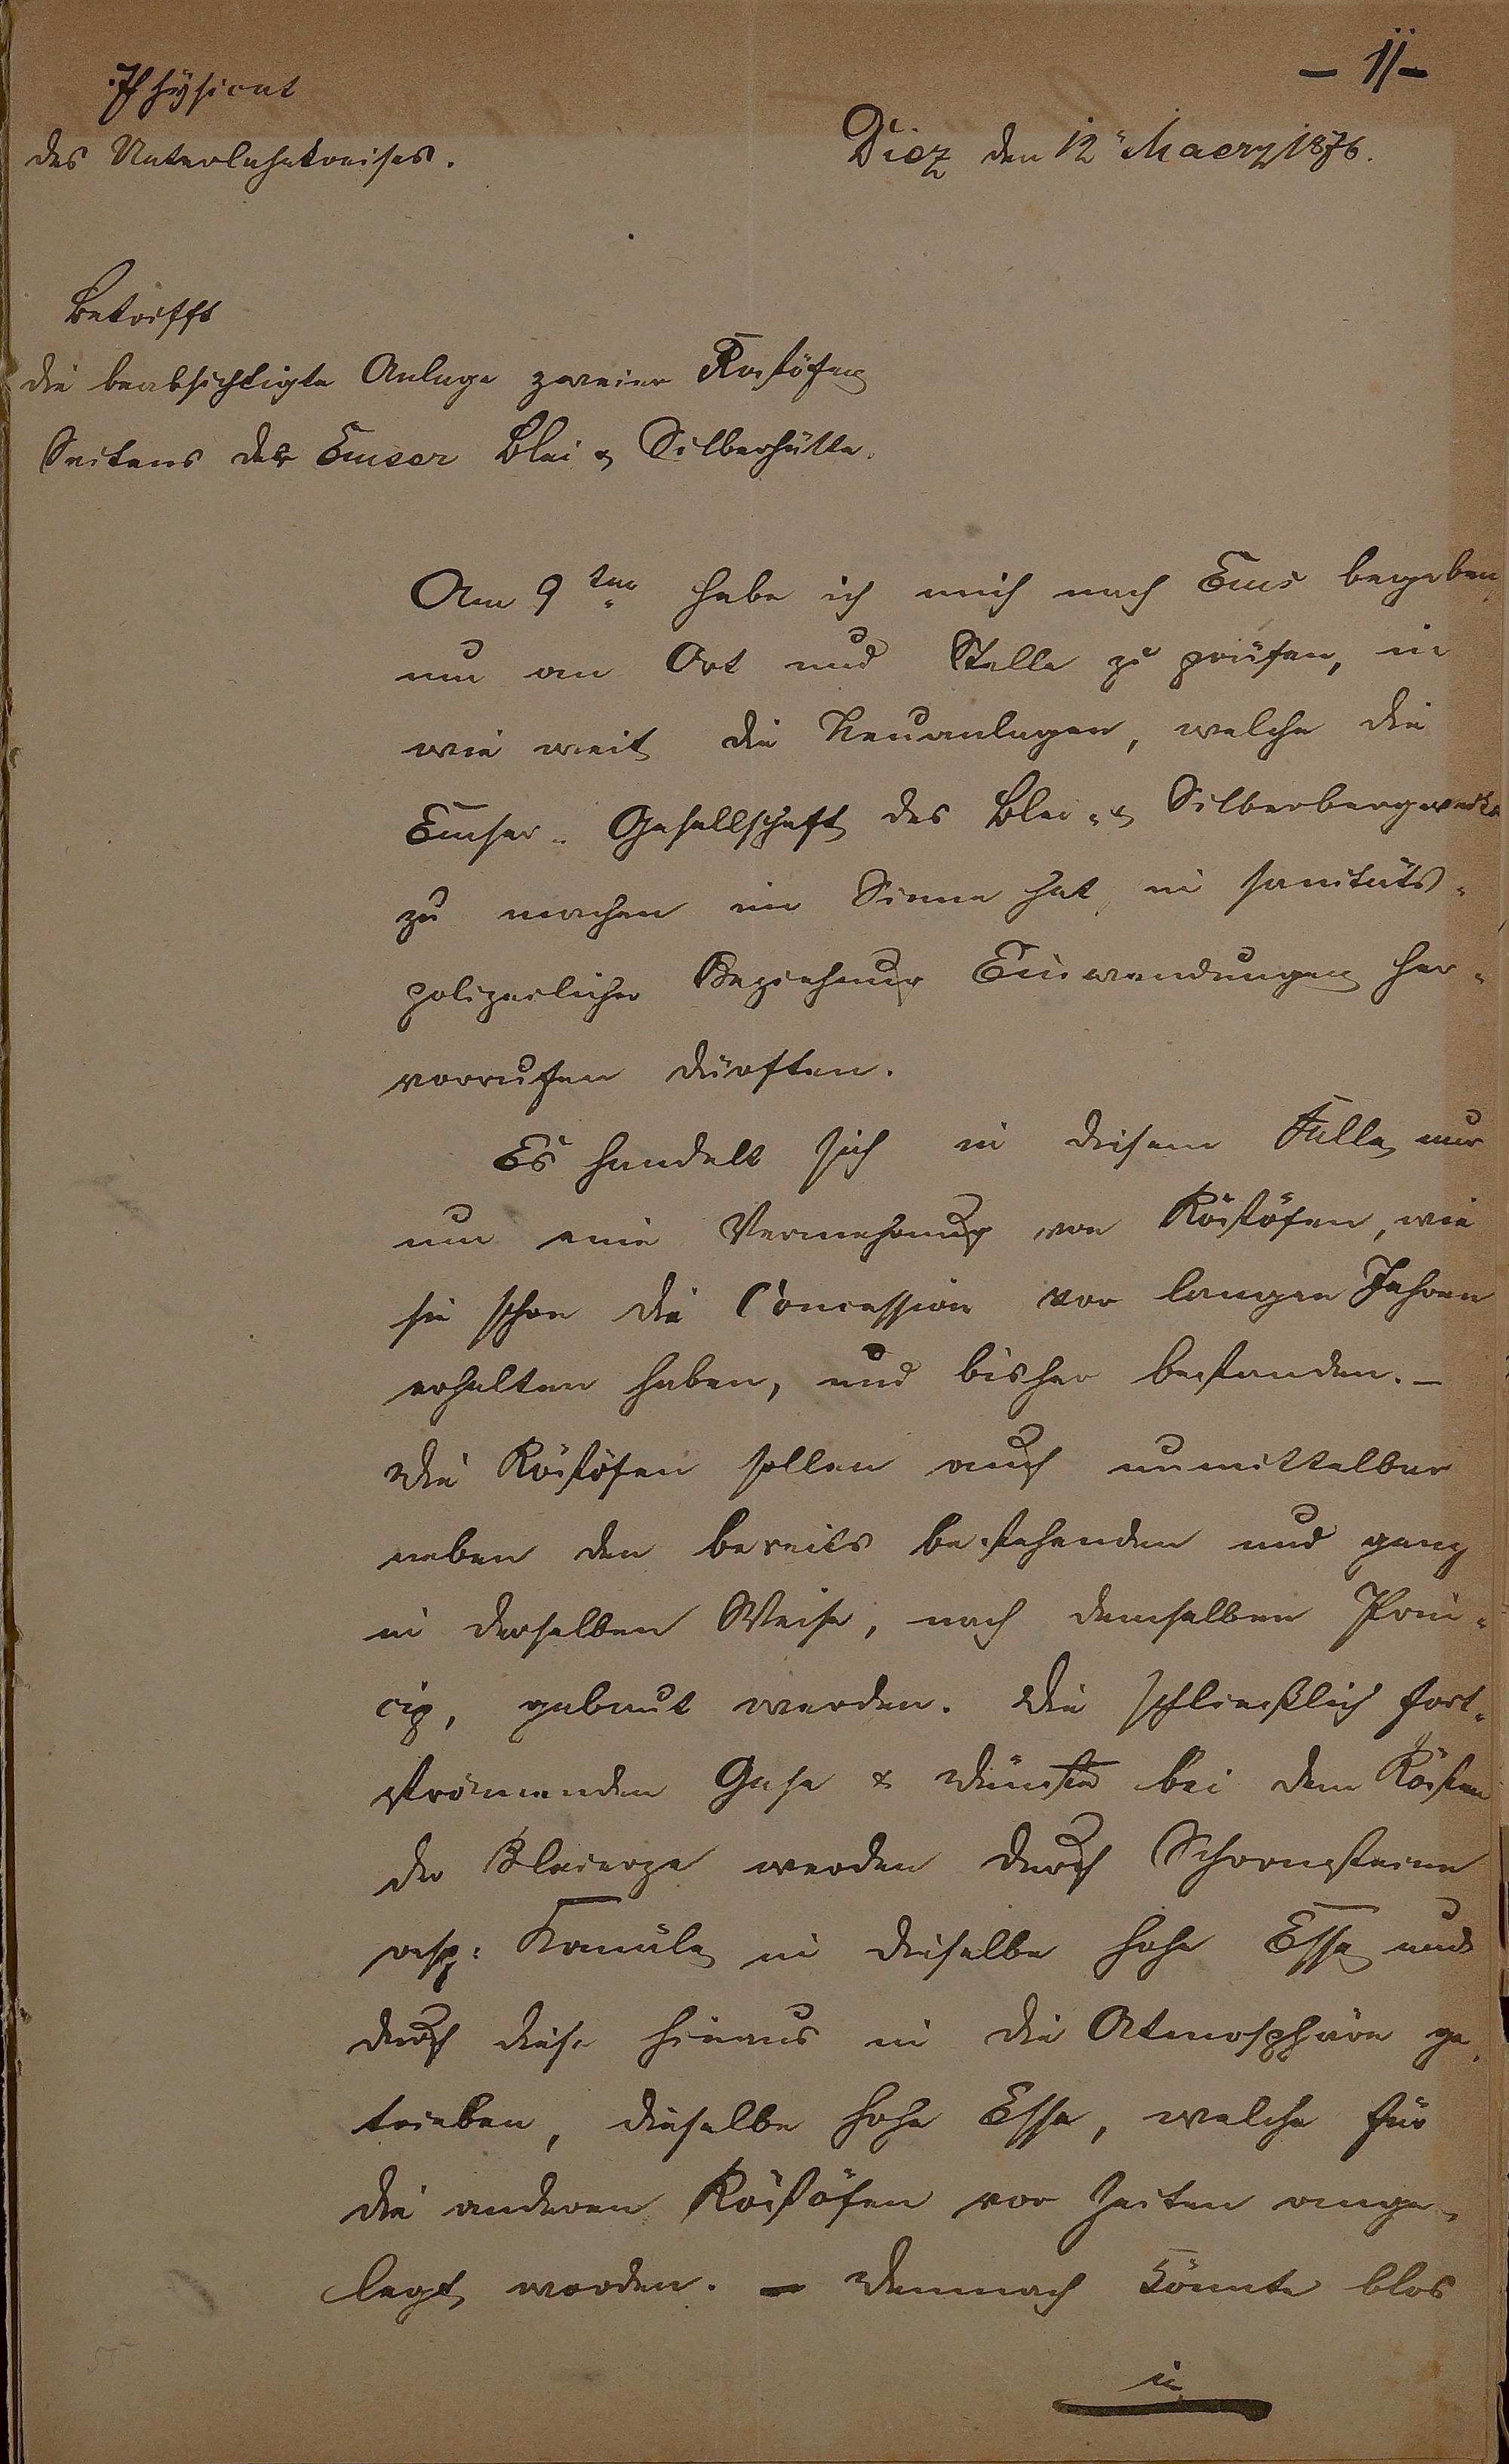 - 11 -
Physicat
des Unterlahnkreises.
Diez den 12" Maerz 1876.
Betrifft
die beabsichtigte Anlage zweier Röstöfen
Seitens der Emser Blei & Silberhütte.
Am 9ten habe ich mich nach Ems begeben,
um an Ort und Stelle zu prüfen, in
wie weit die Neuanlagen, welche die
Emser- Gesellschaft des Blei- & Silberbergwerks
zu machen im Sinne hat, in sanitäts-
polizeilicher Beziehung Einwendungen her-
vorrufen dürften.
Es handelt sich in diesem Falle nur
um eine Vermehrung von Röstöfen, wie
sie schon die Concession vor langen Jahren
erhalten haben, und bisher bestanden. -
Die Röstöfen sollen auch unmittelbar
neben den bereits bestehenden und ganz
in derselben Weise, nach demselben Prin-
cip, gebaut werden. Die schließlich fort-
strömenden Gase & Dünste bei dem Rösten
der Bleierze werden durch Schornsteine
resp: Kanäle in dieselbe hohe Esse und
durch diese hinaus in die Atmosphäre ge-
trieben, dieselbe hohe Esse, welche für
die anderen Röstöfen vor Zeiten ange-
legt worden. - Demnach könnte blos
in